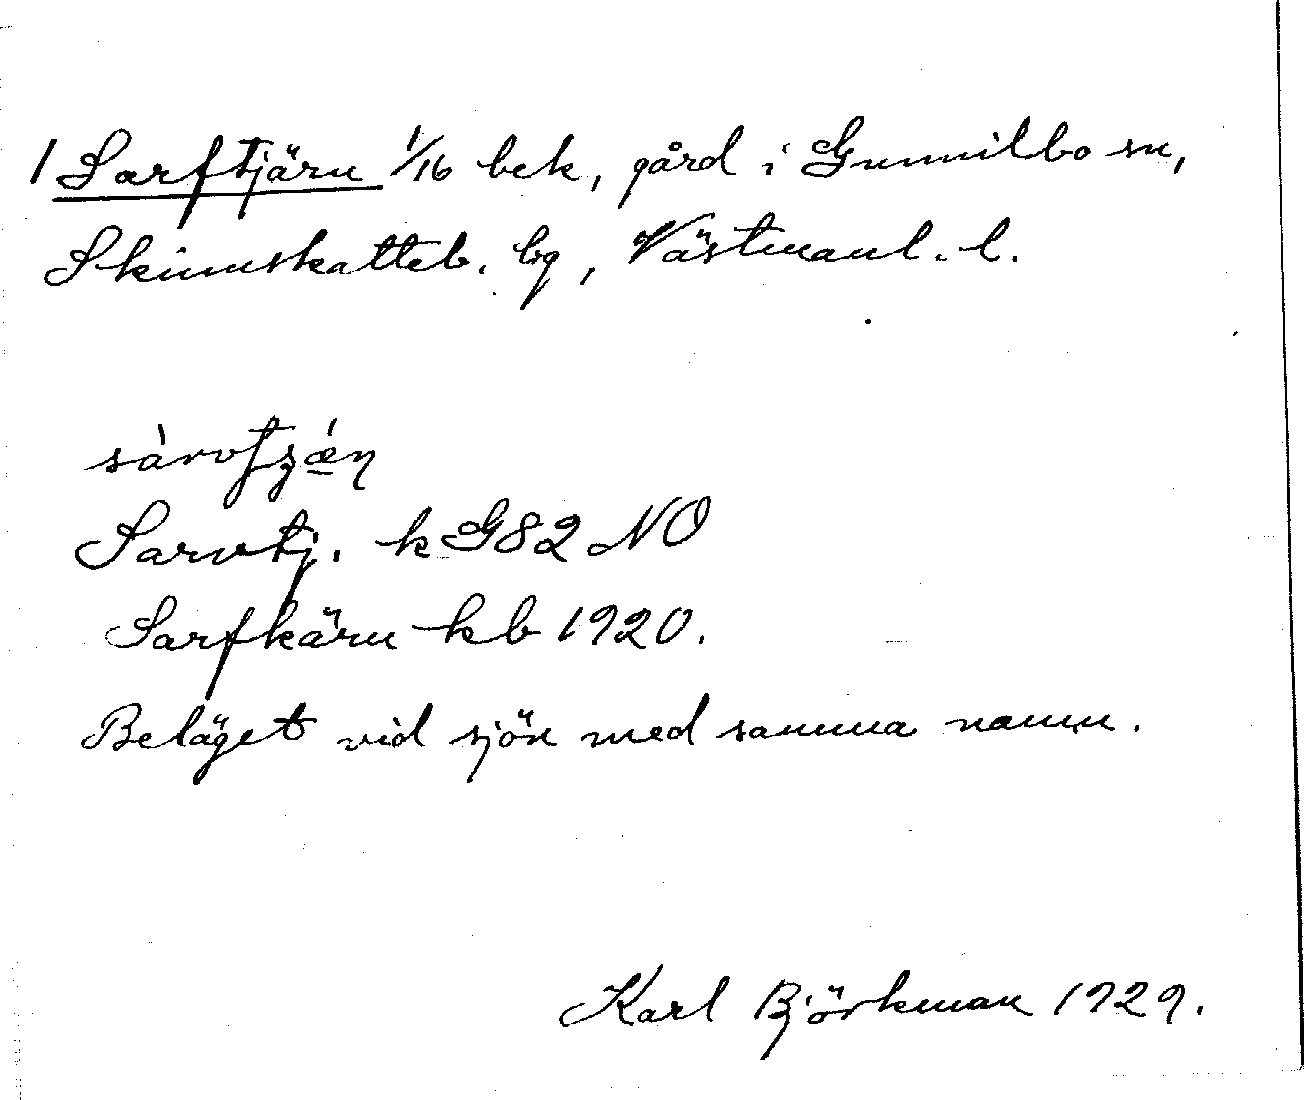 1 Sarftjärn 1/16 bek, gård i Gunnilbo sn,
Skinnskatteb. bg, Västmanl. l.
sàrvtʃǽn
Sarvtj. k G82 NO
Sarfkärn kb 1920.
Beläget vid sjön med samma namn.
Karl Björkman 1929.